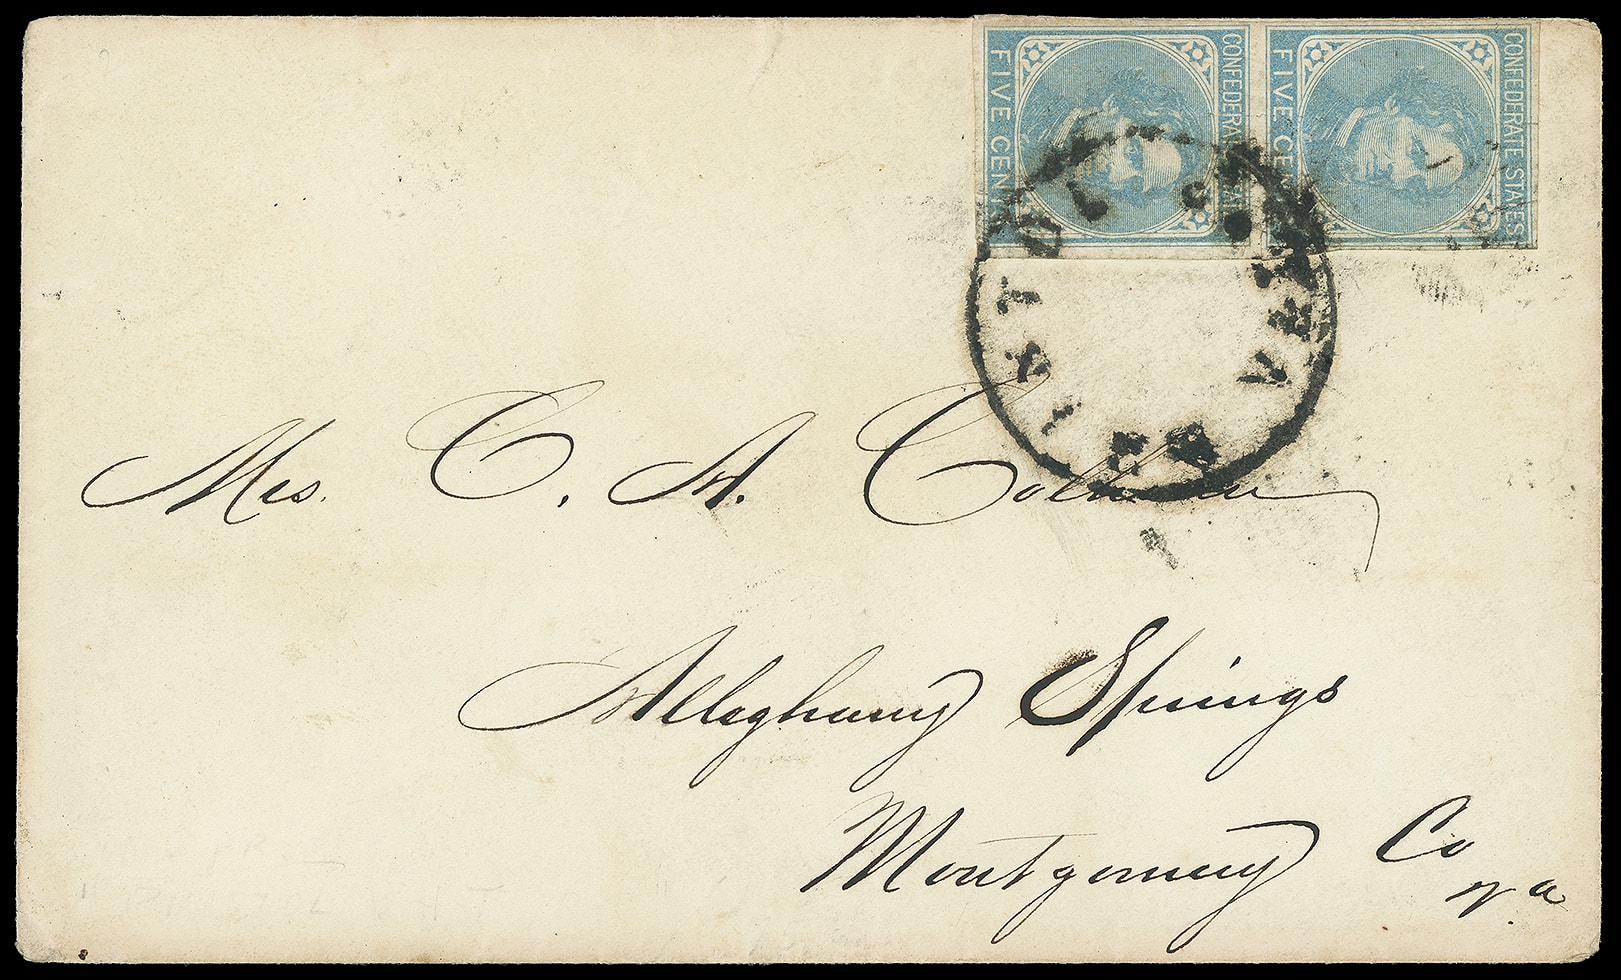 CONFEDERATE STATES
FIVE CENTS
CONFEDERATE STATES
FIVE CENTS
Mrs. C. A. Calhoun
Alleghany Springs
Montgomery Co
Va